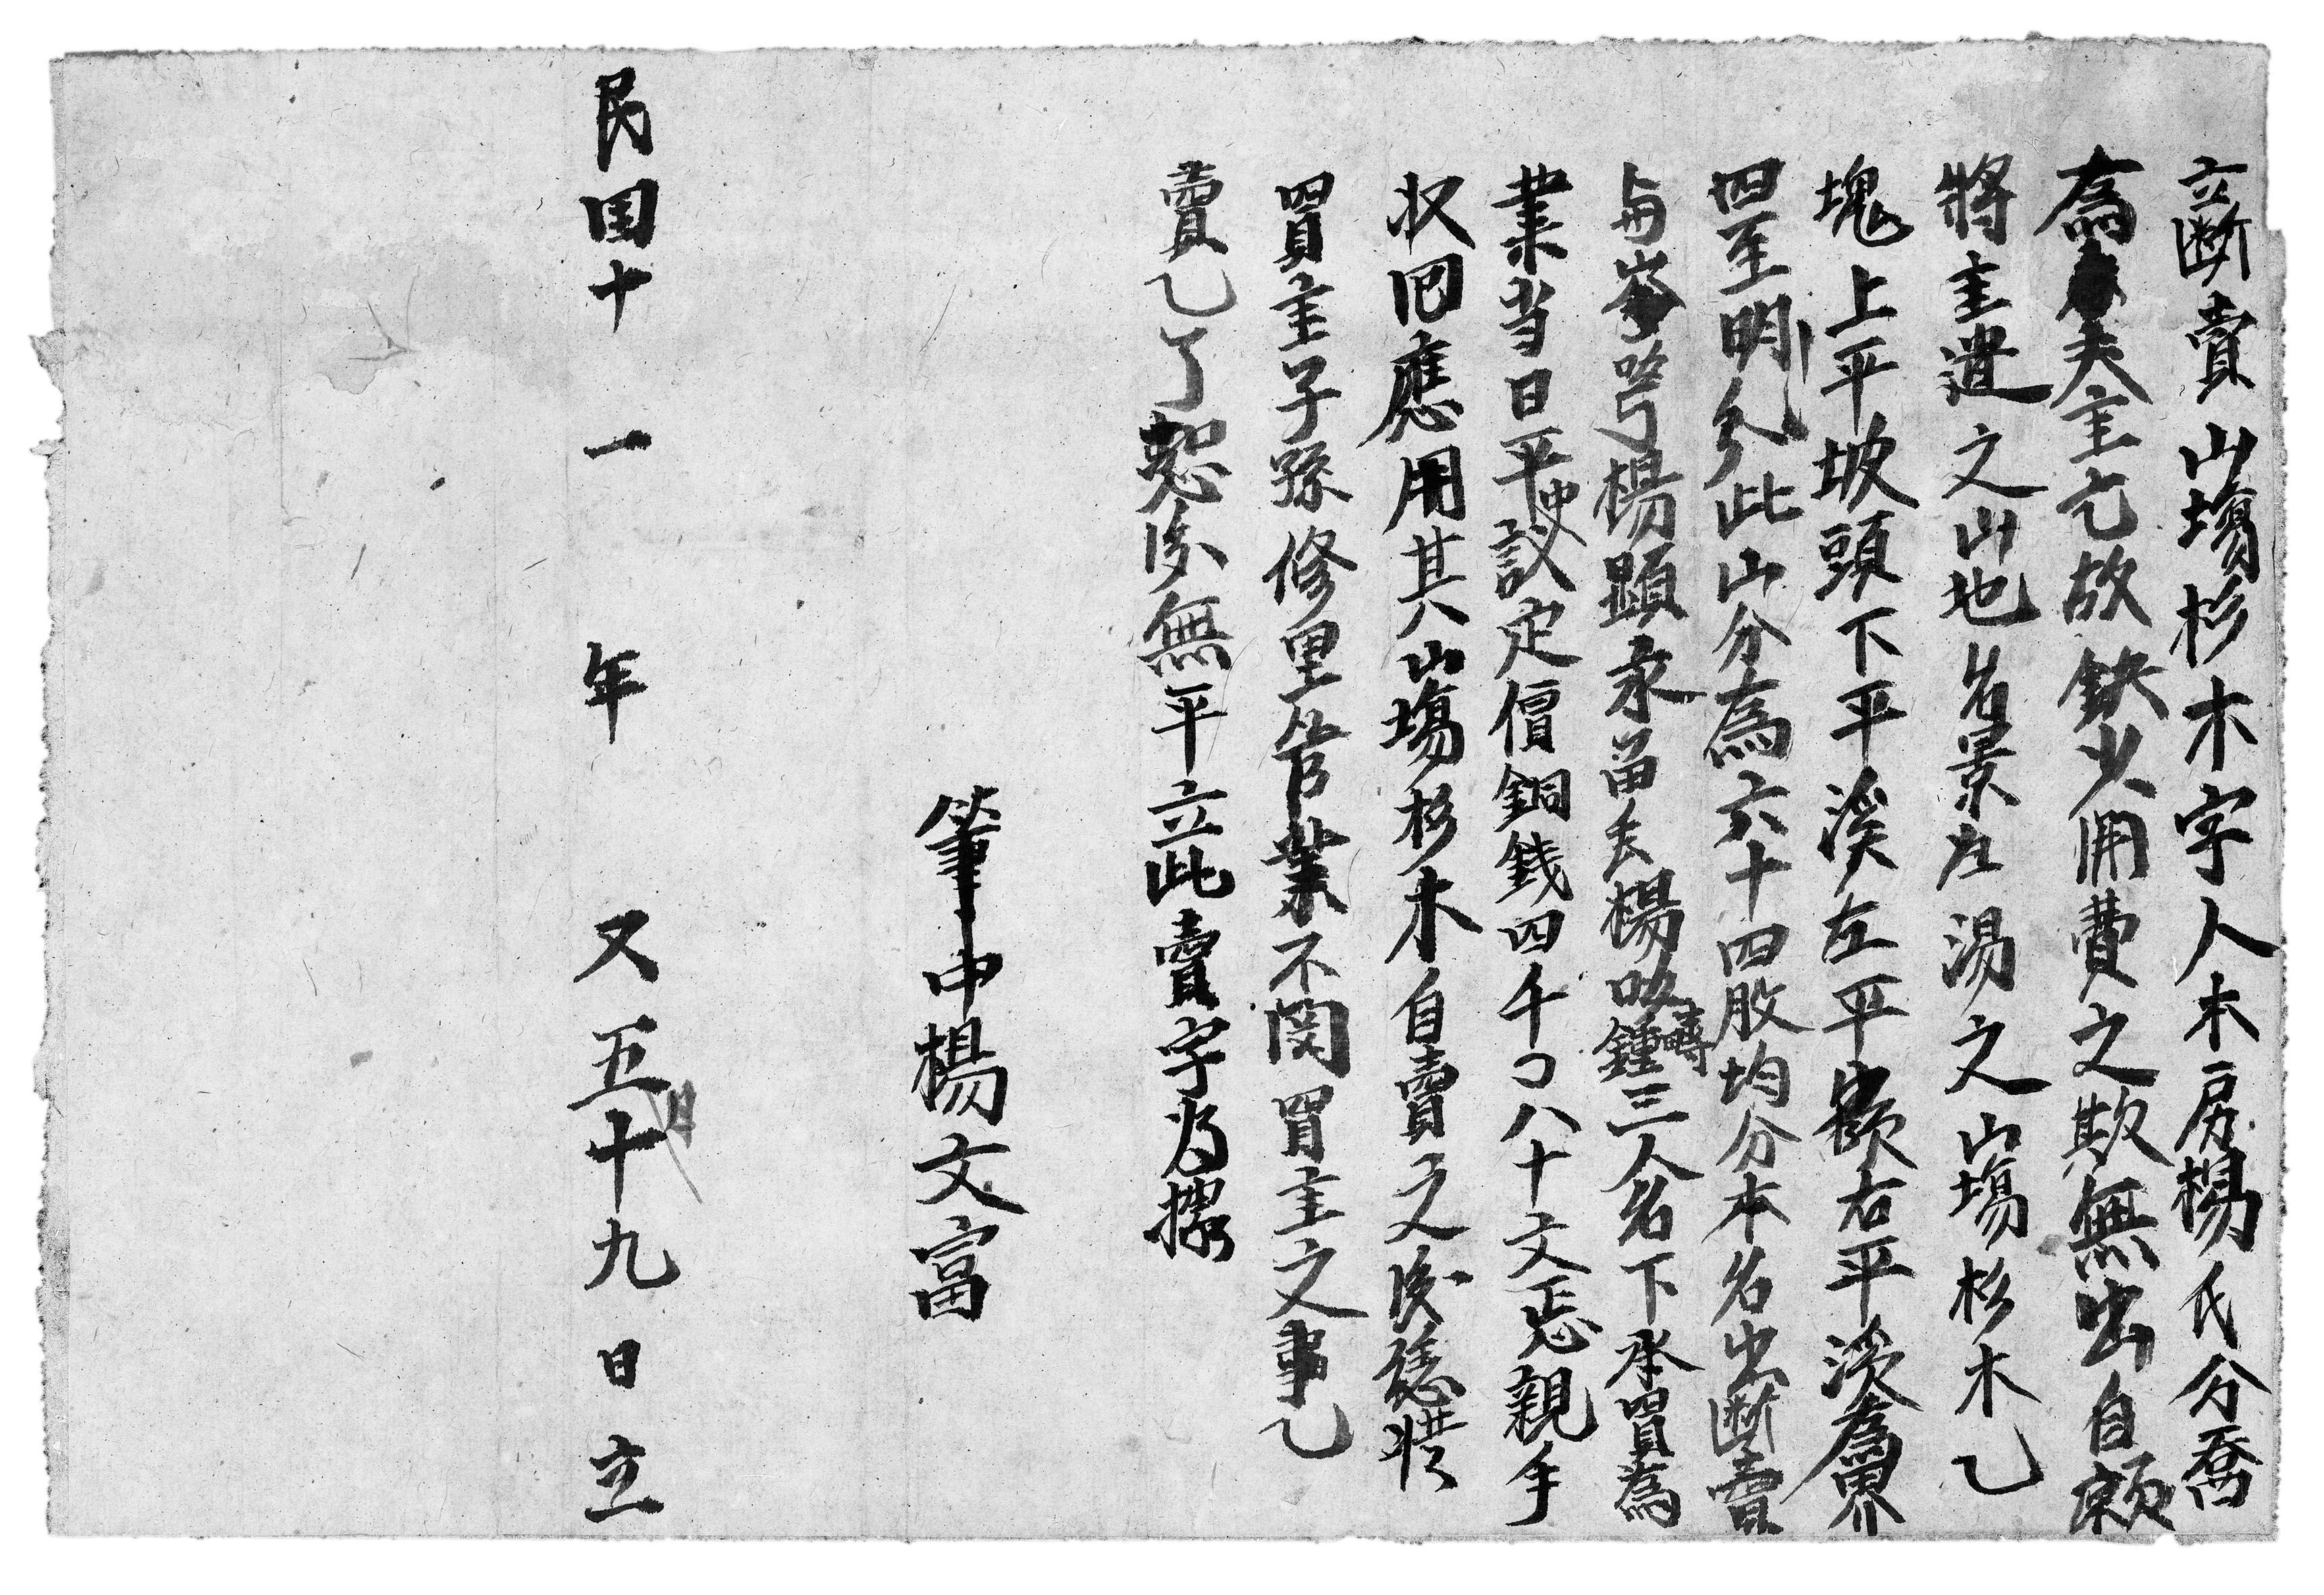 立断賣山塲杉木字人本房楊氏分喬
為夫主亡故缺少用費之欺無出自願
將主遺之山地名景在湯之山塲杉木乙
塊上平坡頭下平溪左平嶺右平溪為界
四至明分此山分為六十四股均分本名出断賣
與岑楊顕永楊鍾三人名下承買為
業当日平中議定價銅錢四千八十文悉親手
収回應用其山塲杉木自賣之後
買主子孫修里管業不関買主之事乙
賣乙了後無平立此賣字为據
筆中楊文富
民国十一年又五月十九日立